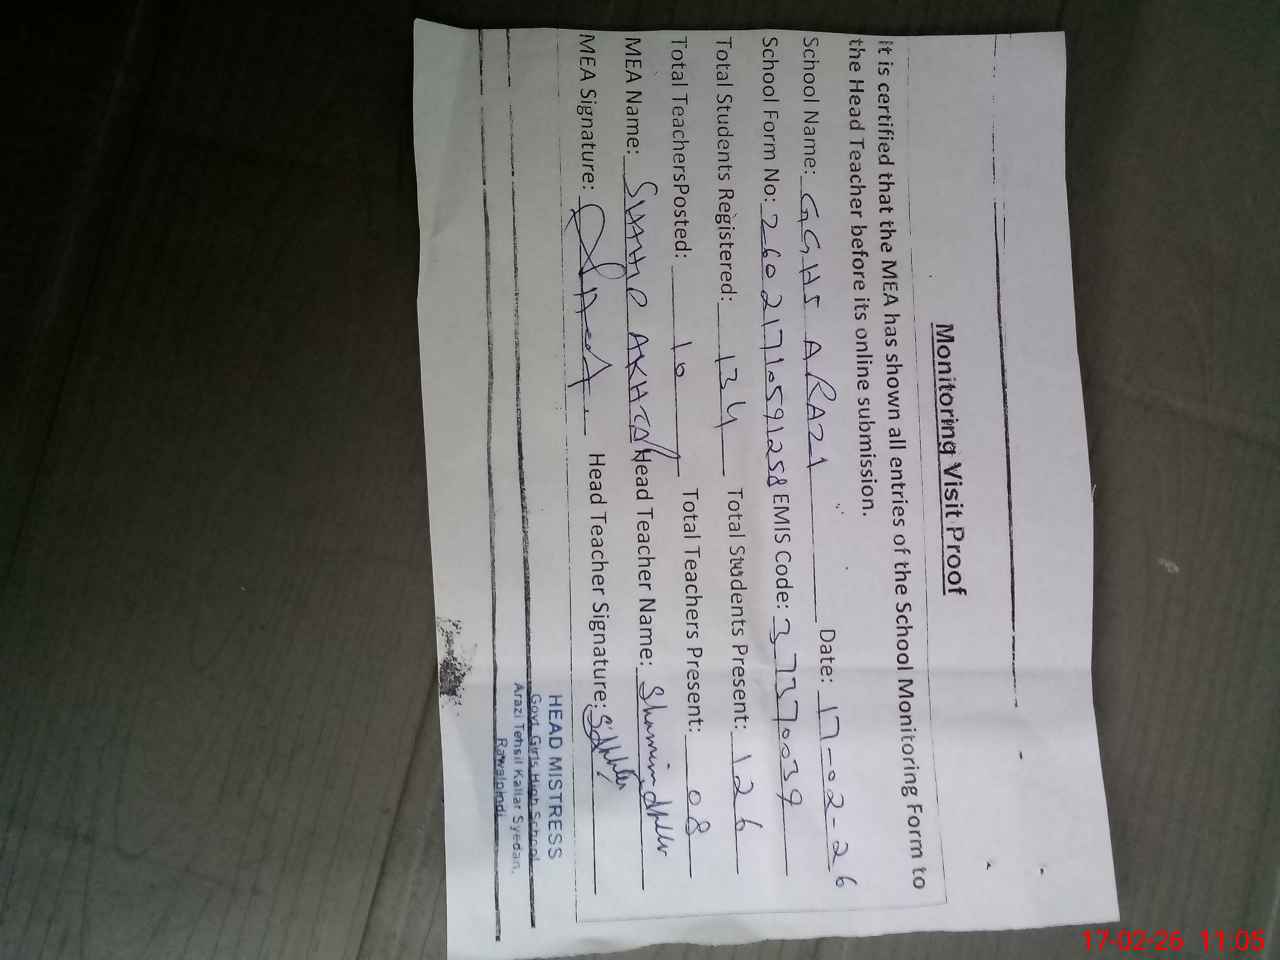 Monitoring Visit Proof
It is certified that the MEA has shown all entries of the School Monitoring Form to
the Head Teacher before its online submission.
School Name: GGHS ARAZI Date: 17-02-26
School Form No: 26021710591258 EMIS Code: 37370039
Total Students Registered: 134 Total Students Present: 126
Total TeachersPosted: 10 Total Teachers Present: 08
MEA Name: AKHTAR Head Teacher Name: Shamim
MEA Signature: Head Teacher Signature:
HEAD MISTRESS
Govt. Girls High School
Arazi Tehsil Kallar Syedan,
Rawalpindi
17-02-26 11:05